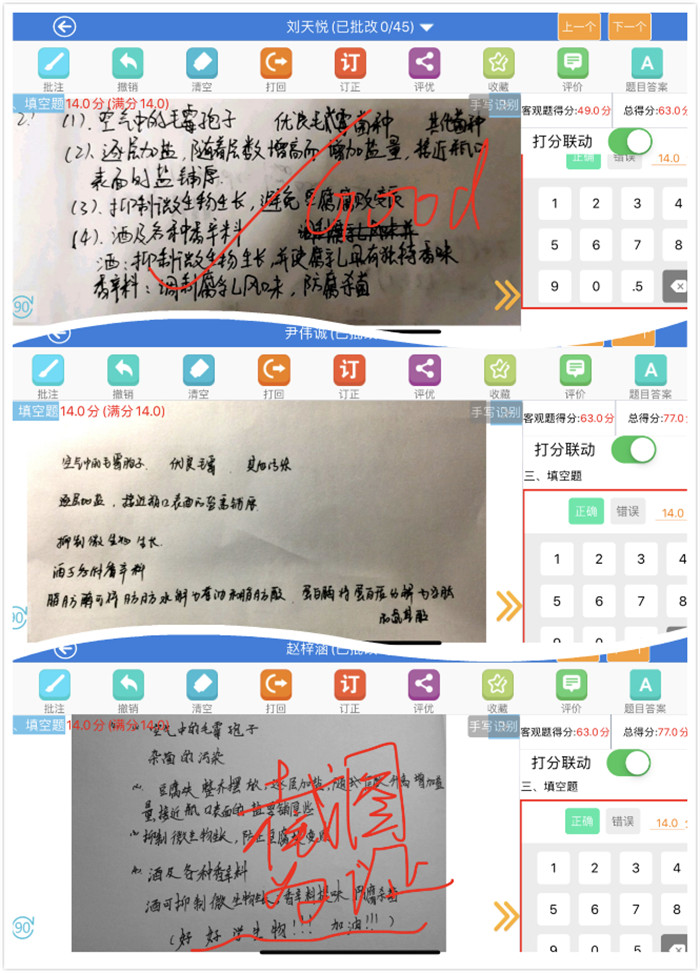 刘天悦 (已批改 0/45)
上一个 下一个
批注 撤销 清空 打回 订正 评优 收藏 评价 题目答案
填空题 14.0 分 (满分 14.0)
手写识别
客观题得分:49.0分 总得分:63.0分
打分联动
正确 错误 14.0
1 2 3 4
5 6 7 8
9 0 .5
2. (1). 空气中的毛霉孢子 优良毛霉菌种 其他菌种
(2). 逐层加盐, 随着层数增高而增加盐量, 接近瓶口
表面的盐铺厚.
(3). 抑制微生物生长, 避免豆腐腐败变质
(4). 酒及各种香辛料
酒: 抑制微生物生长, 并使腐乳具有独特香味
香辛料: 调制腐乳风味, 防腐杀菌
Good
90
尹伟诚
批注 撤销 清空 打回 订正 评优 收藏 评价 题目答案
填空题 14.0 分 (满分 14.0)
手写识别
客观题得分:63.0分 总得分:77.0分
打分联动
三、填空题
正确 错误 14.0
1 2 3 4
5 6 7 8
空气中的毛霉孢子. 优良毛霉
逐层加盐, 接近瓶口表面
抑制微生物生长.
酒 香辛料
脂肪酶可将脂肪水解为甘油和脂肪酸. 蛋白酶将蛋白质分解为多肽
90
赵梓涵
批注 撤销 清空 打回 订正 评优 收藏 评价 题目答案
填空题 14.0 分 (满分 14.0)
手写识别
客观题得分:63.0分 总得分:77.0分
打分联动
三、填空题
正确 错误 14.0
1 2 3 4
5 6 7 8
9 0 .5
空气中的毛霉孢子
杂菌的污染
豆腐块整齐摆放, 逐层加盐, 增加盐
量, 接近瓶口表面的盐要铺厚些
抑制微生物生长, 防止豆腐
酒及各种香辛料
酒可抑制微生物生长, 香辛料
(好好学生物!!! 加油!!!)
截图
为证
90